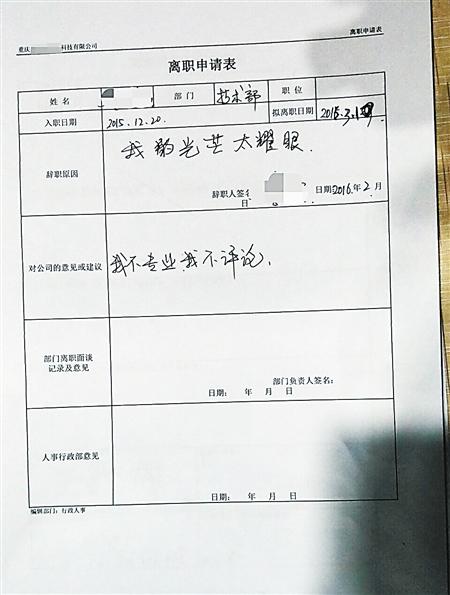 重庆 科技有限公司
离职申请表
离职申请表
姓名 部门 技术部 职位
入职日期 2015.12.20. 拟离职日期 2015.3.1
辞职原因 我的光芒太耀眼.
辞职人签名 日期:2016.年2.月
日
对公司的意见或建议 我不专业,我不评论,
部门离职面谈
记录及意见
部门负责人签名:
日期: 年 月 日
人事行政部意见
日期: 年 月 日
编制部门:行政人事